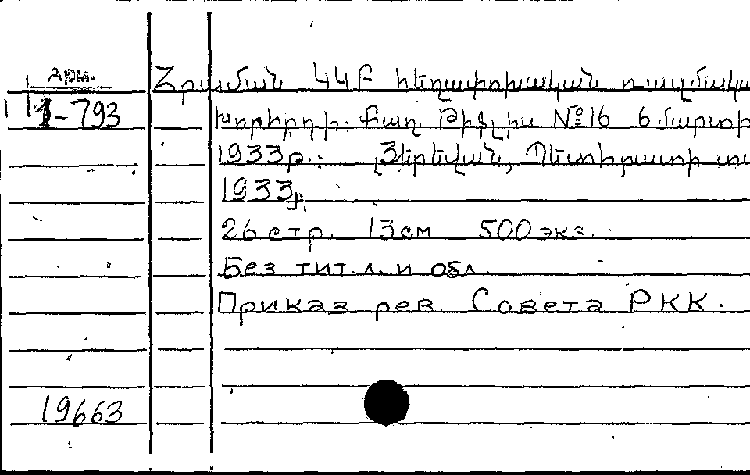 Арм.
Հրաման ԿԿԲ հեղափոխական ռազմակա
1-793 Խորհրդի. Քաղ. Թիֆլիս №16 6 մարտի
1933թ. Յերեվան, Պետհրատի տ
1933թ.
26 стр. 13см 500 экз.
Без тит. л. и обл.
Приказ рев. Совета РКК.
19663